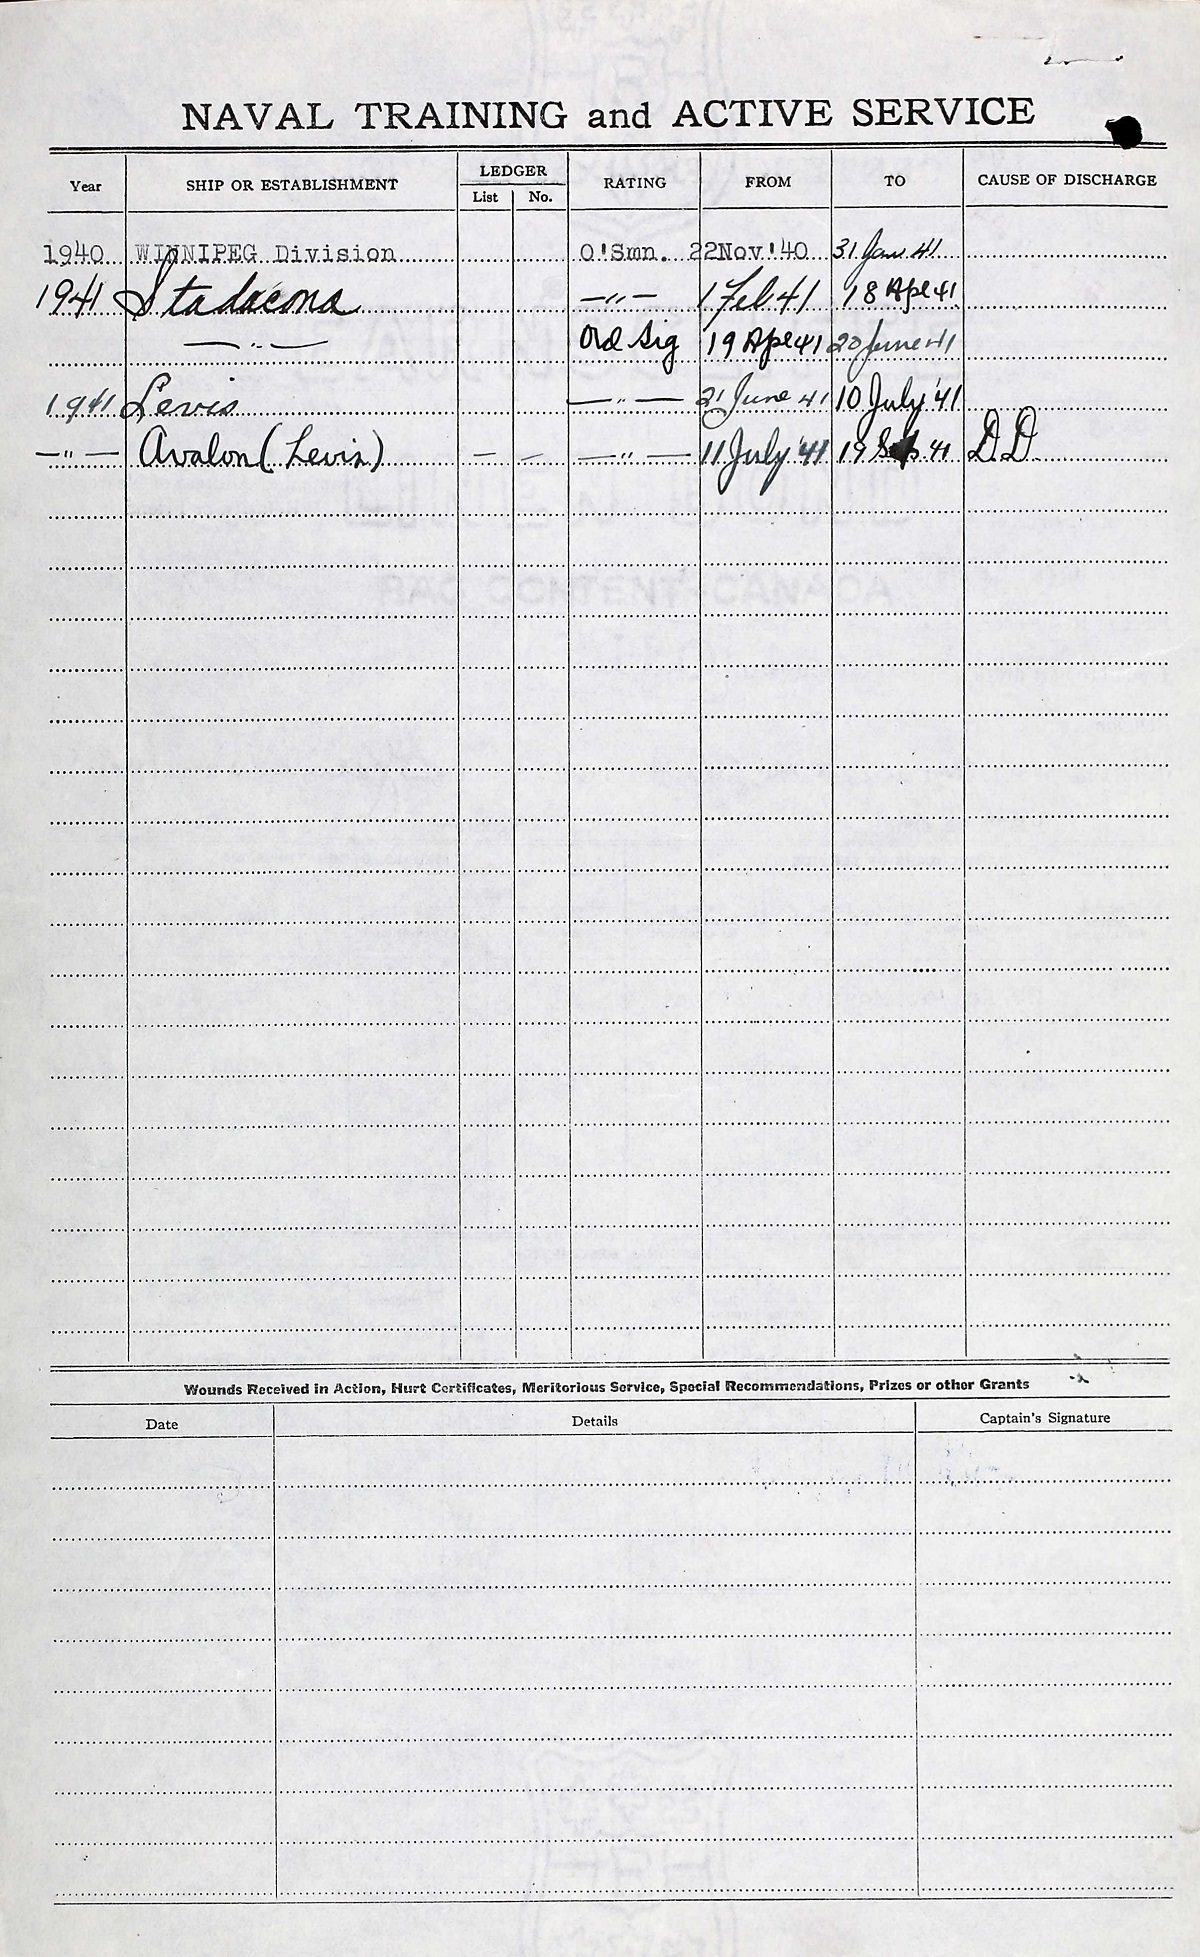 NAVAL TRAINING and ACTIVE SERVICE
Year SHIP OR ESTABLISHMENT LEDGER List No. RATING FROM TO CAUSE OF DISCHARGE
1940 WINNIPEG Division O'Smn. 22Nov'40 31 Jan 41
1941 Stadacona —"— 1 Feb 41 18 Apl 41
—"— Ord Sig 19 Apl 41 20 June 41
1941 Levis —"— 21 June 41 10 July '41
—"— Avalon (Levis) — — —"— 11 July '41 19 Sep 41 D.D.
Wounds Received in Action, Hurt Certificates, Meritorious Service, Special Recommendations, Prizes or other Grants
Date Details Captain's Signature